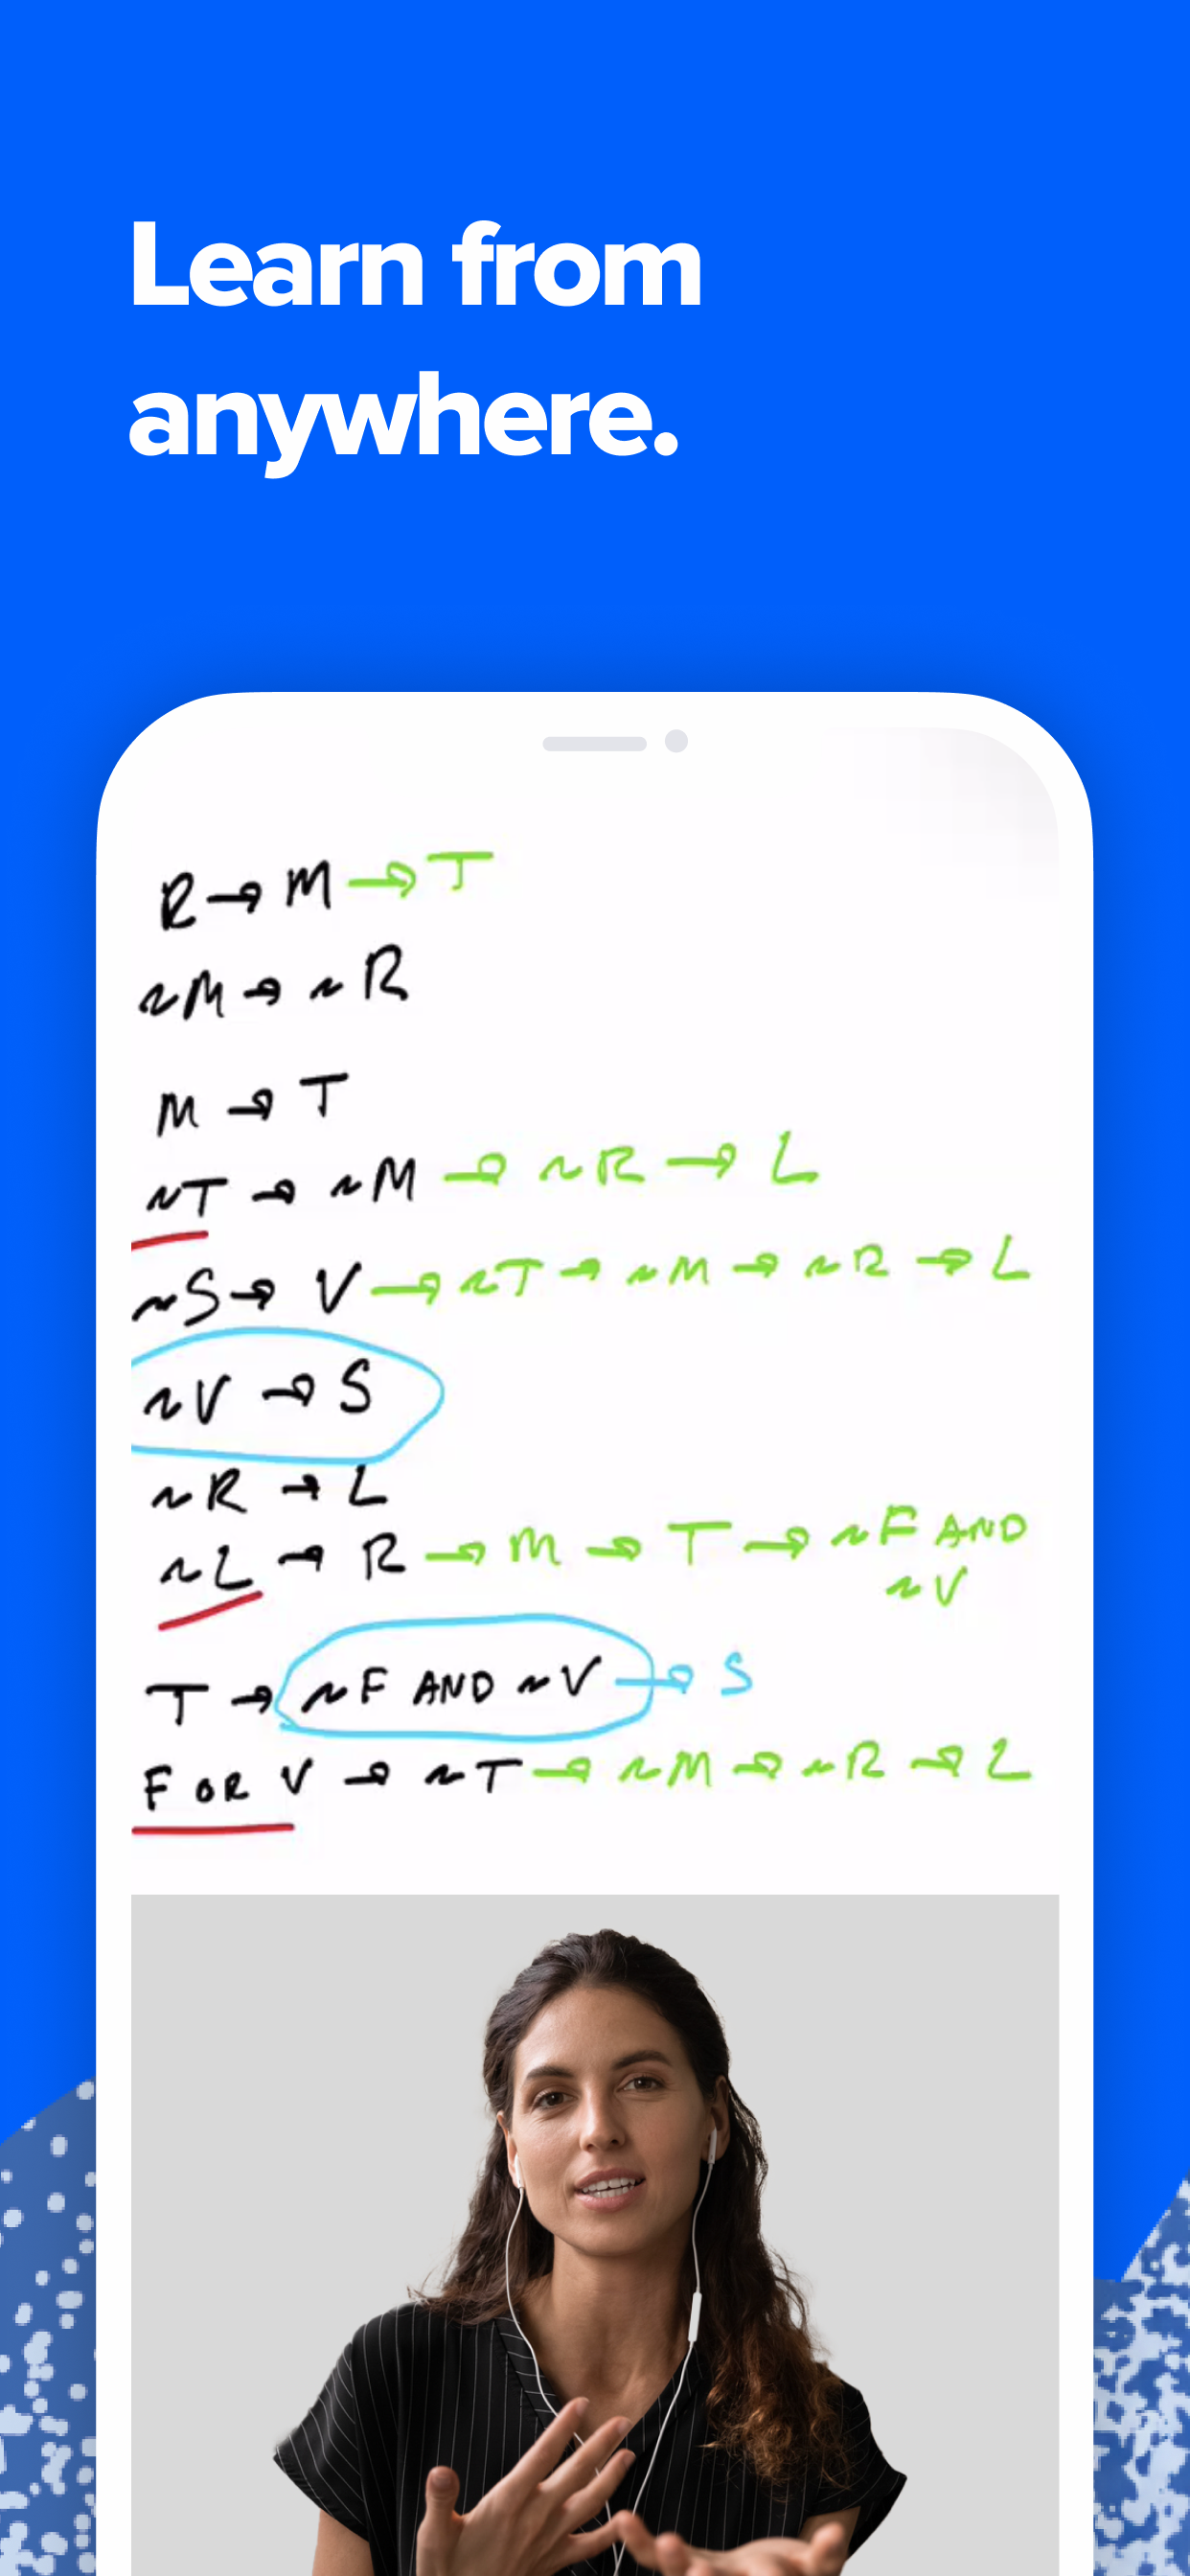 Learn from
anywhere.
R → M → T
~M → ~R
M → T
~T → ~M → ~R → L
~S → V → ~T → ~M → ~R → L
~V → S
~R → L
~L → R → M → T → ~F AND
~V
T → ~F AND ~V → S
F OR V → ~T → ~M → ~R → L